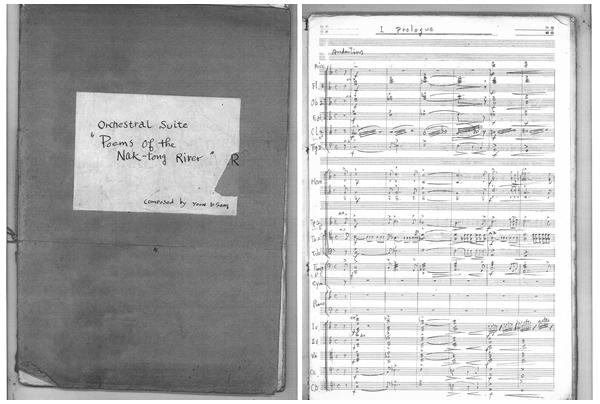 Orchestral Suite
"Poems Of the
Nak-tong River"
R
Composed by Yoon I-Sang
I Prologue
Andantino
Picc
Fl.
Ob
E.H
Cl
Fg
Horn
Tp
Tb
Tuba
Timp
Cym
Piano
Iv
IIv
Va
Vc
Cb